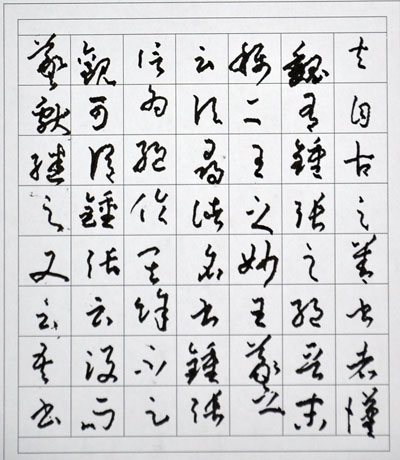 夫自古之善書者漢
魏有鍾張之絕晉末
稱二王之妙王羲之
云頃尋諸名書鍾張
信為絕倫其餘不足
觀可謂鍾張云沒而
羲獻繼之又云吾書